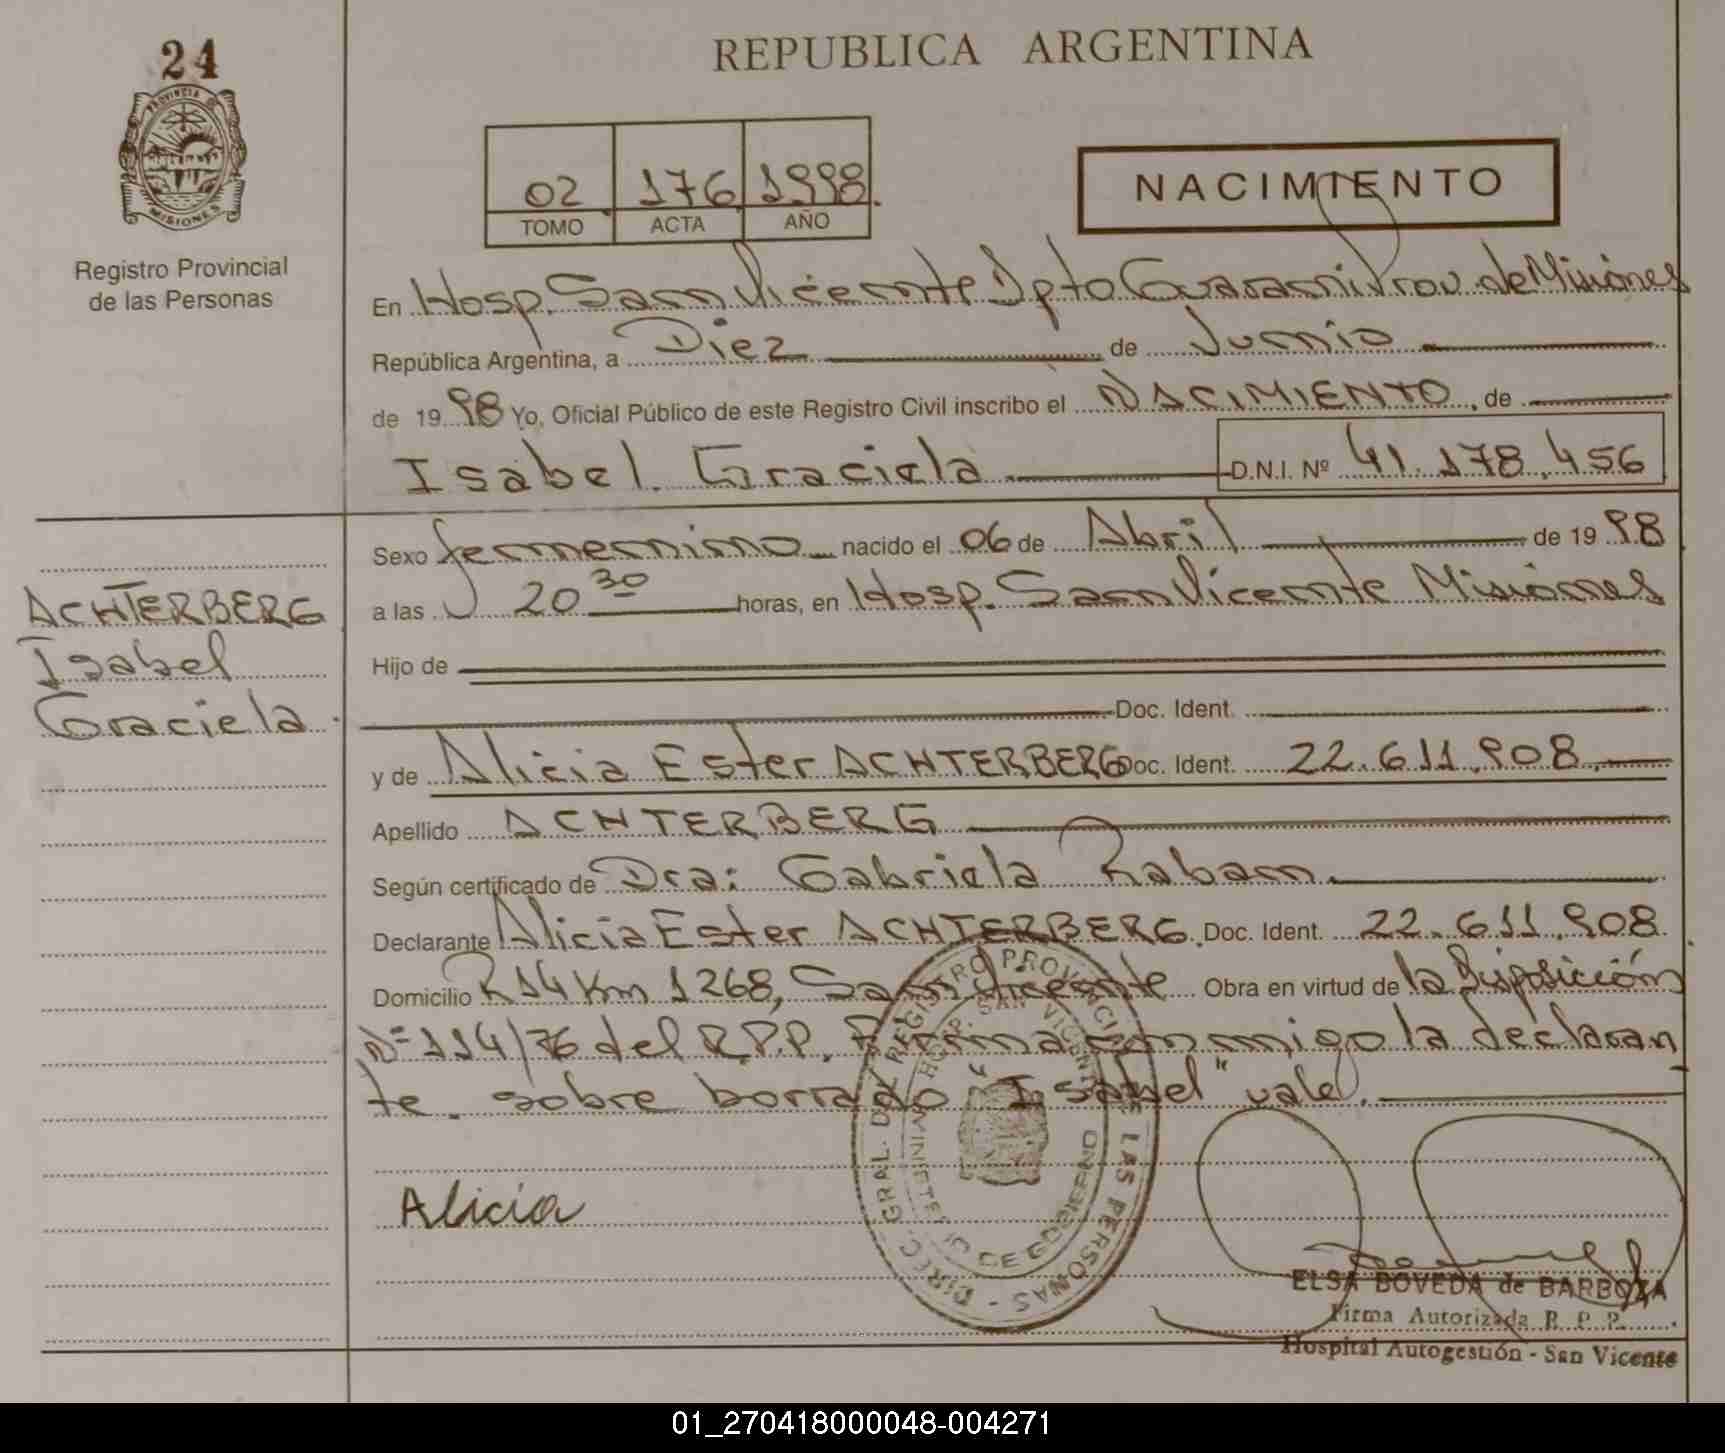 24
REPUBLICA ARGENTINA
PROVINCIA DE
MISIONES
Registro Provincial
de las Personas
02 176 1998.
TOMO ACTA AÑO
NACIMIENTO
En Hosp. San Vicente Dpto Guarani Prov. de Misiones
República Argentina, a Diez de Junio
de 19 98 Yo, Oficial Público de este Registro Civil inscribo el NACIMIENTO, de
Isabel Graciela D.N.I. Nº 41.178.456
Sexo femenino nacido el 06 de Abril de 19 98
a las 20 30 horas, en Hosp. San Vicente Misiones
Hijo de
Doc. Ident.
y de Alicia Ester ACHTERBERG Doc. Ident. 22.611.908.
Apellido ACHTERBERG
Según certificado de Dra: Gabriela Raban.
Declarante Alicia Ester ACHTERBERG. Doc. Ident. 22.611.908.
Domicilio R 14 Km 1268, San Vicente Obra en virtud de la Disposición
Nº 114/76 del R.P.P. Firma conmigo la declaran
te. sobre borrado "Isabel" vale.
ACHTERBERG
Isabel
Graciela.
Alicia
DIREC. GRAL. DEL REGISTRO PROVINCIAL DE LAS PERSONAS -
HOSP. SAN VICENTE
MINISTERIO DE GOBIERNO
ELSA BOVEDA de BARBOZA
Firma Autorizada R. P. P.
Hospital Autogestión - San Vicente
01_270418000048-004271